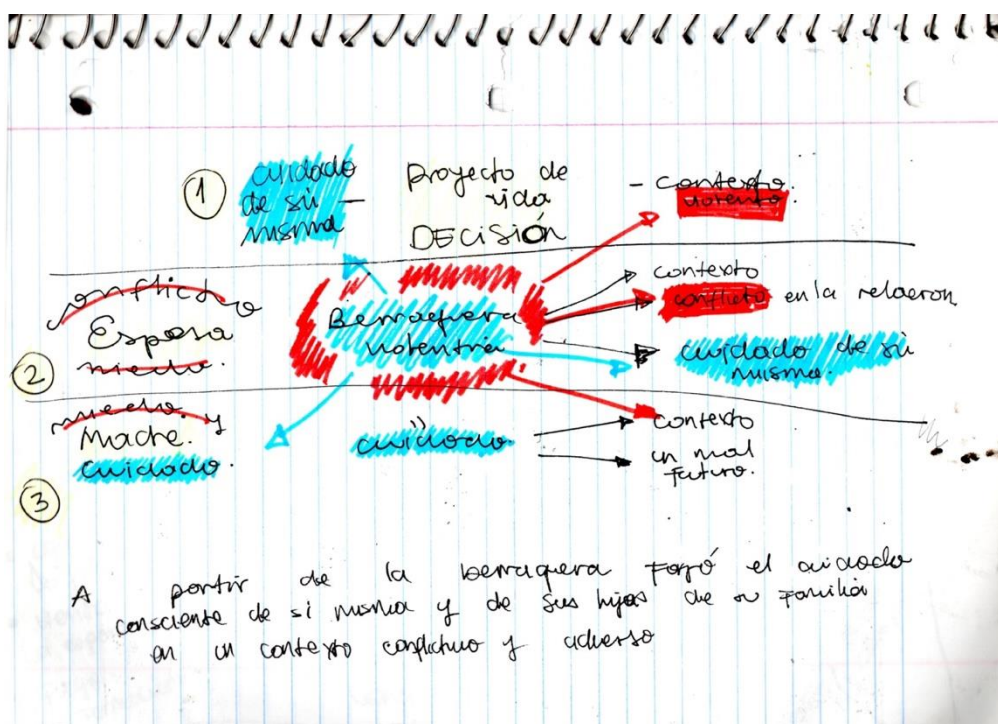 1
cuidado
de sí —
misma
proyecto de
vida
DECISIÓN
- contexto.
violento.
conflicto
Esposa
miedo.
2
Berraquera
contexto
conflicto en la relacion
cuidado de sí
misma.
miedo. y
Madre.
cuidado.
3
cuidado.
contexto
un mal
futuro.
A partir de la berraquera forjó el cuidado
consciente de si misma y de sus hijos de su familia
en un contexto conflictivo y adverso